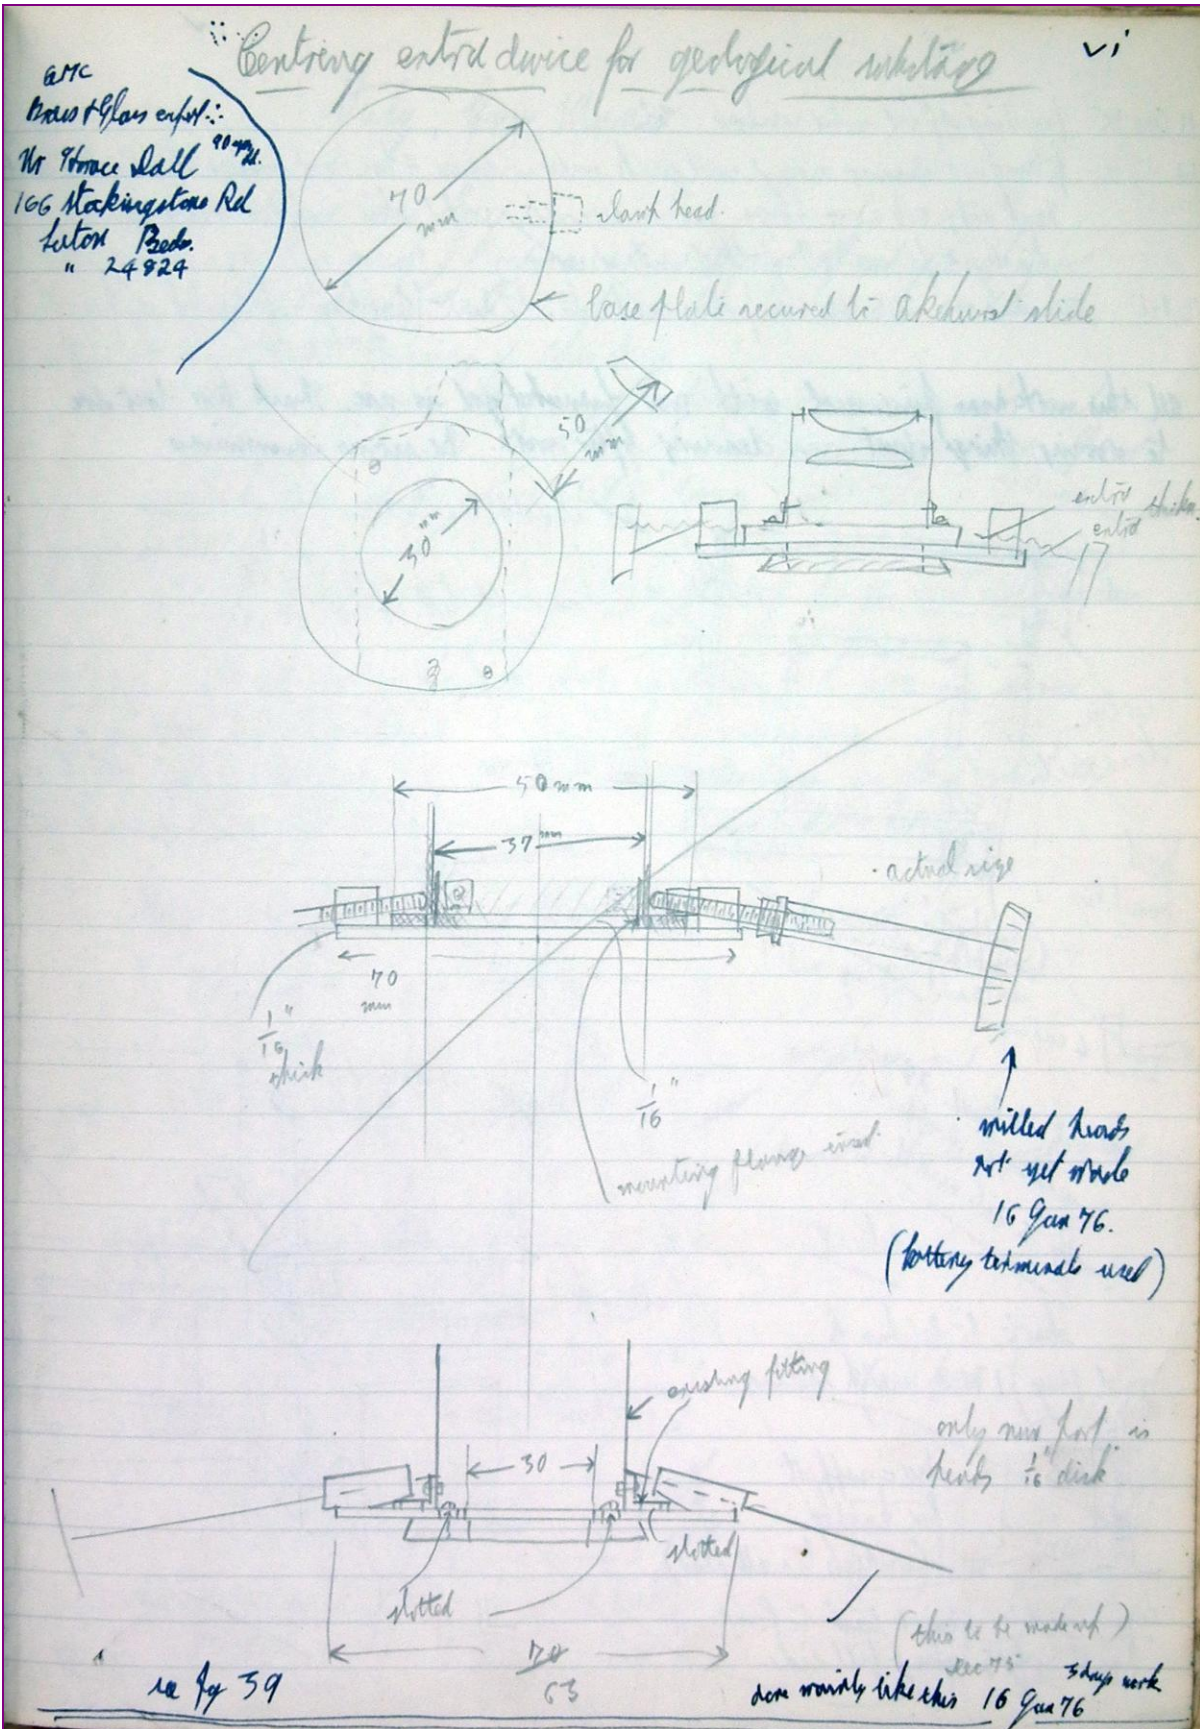 vi
Centring device for geological substage
QMC
Brass & Glass expert
Mr Horace Dall
166 Stockingstone Rd
Luton Beds.
" 24824
70
mm
clamp head.
base plate secured to akehurst slide
50
mm
30 mm
50 mm
37 mm
actual size
70
mm
1/16"
thick
1/16"
mounting flange
milled heads
not yet made
16 Jan 76.
(battery terminals used)
existing fitting
30
only new part is
heads 1/16" disk
slotted
slotted
(this to be made up)
Dec 75
70
63
see pg 39
3 days work
done mainly like this 16 Jan 76